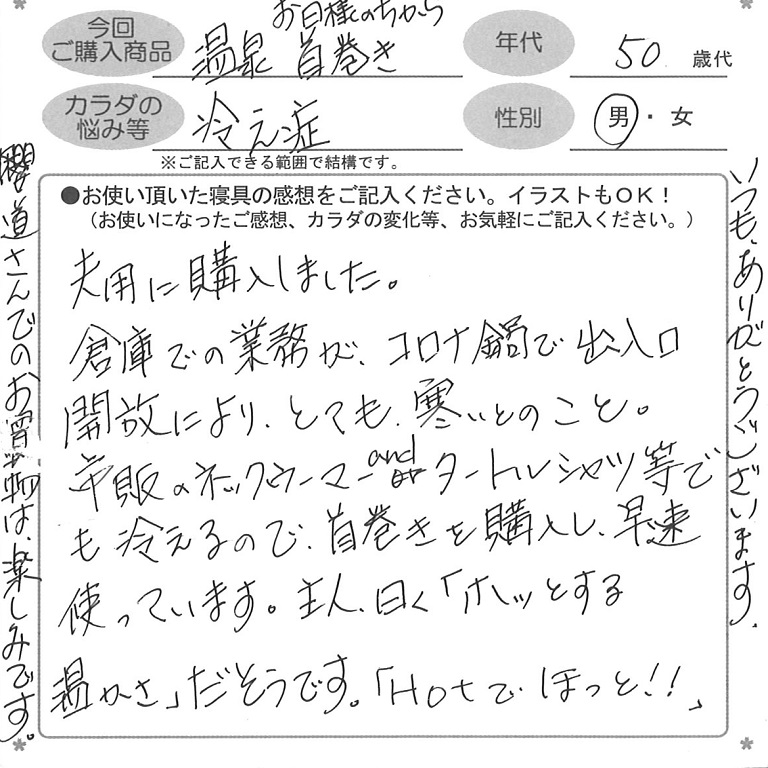 今回
ご購入商品
お日様のちから
温泉 首巻き
年代
50 歳代
カラダの
悩み等
冷え症
性別
男・女
※ご記入できる範囲で結構です。
●お使い頂いた寝具の感想をご記入ください。イラストもOK!
(お使いになったご感想、カラダの変化等、お気軽にご記入ください。)
夫用に購入しました。
倉庫での業務が、コロナ鍋で出入口
開放により、とても、寒いとのこと。
市販のネックウーマー and タートルシャツ等で
も冷えるので、首巻きを購入し、早速
使っています。主人、曰く「ホッとする
温かさ」だそうです。「Hotでほっと!!」
いつも、ありがとうございます。
道さんでのお買物は、楽しみです。